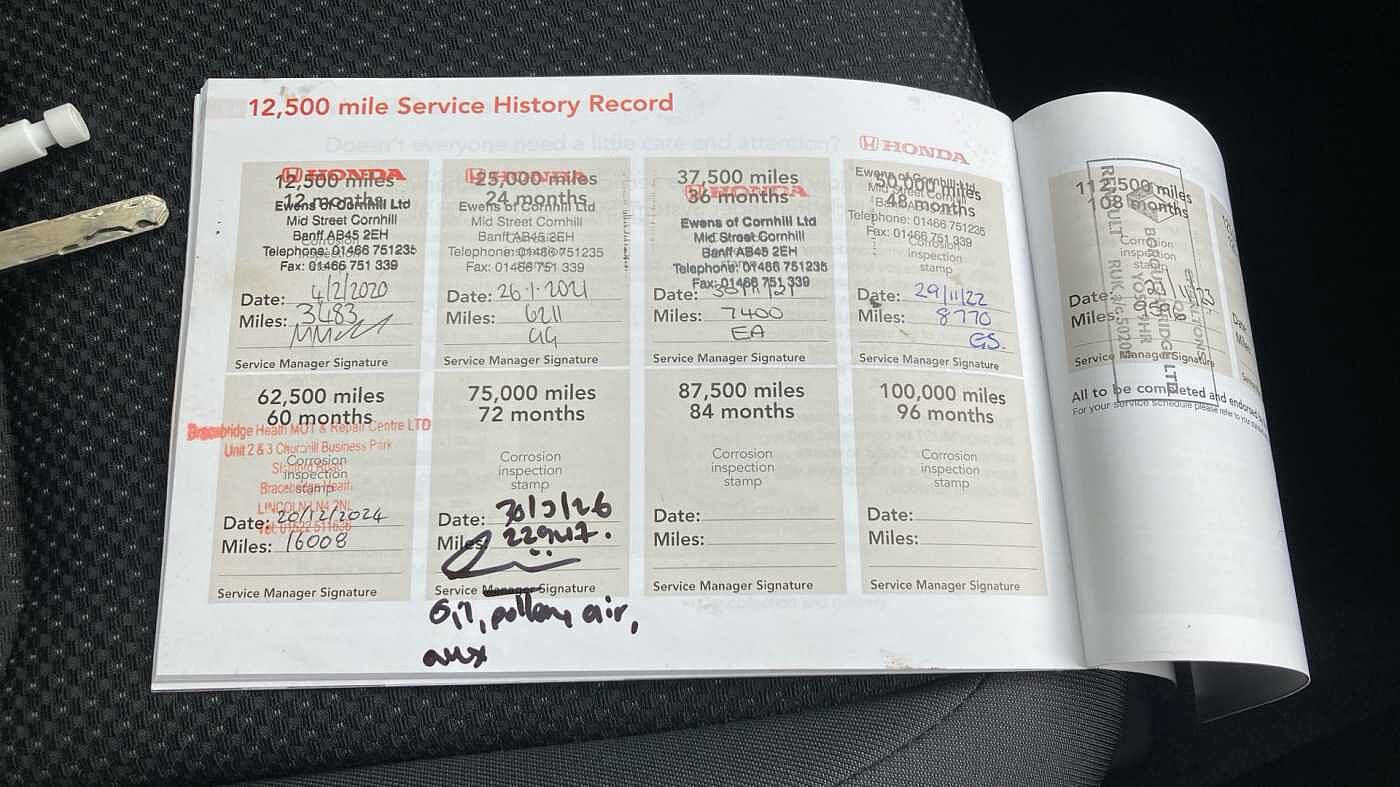 12,500 mile Service History Record
Doesn't everyone need a little care and attention?
HONDA
12,500 miles
12 months
Ewens of Cornhill Ltd
Mid Street Cornhill
Banff AB45 2EH
Telephone: 01466 751235
Fax: 01466 751 339
Corrosion
inspection
stamp
Date: 4/2/2020
Miles: 3483
Service Manager Signature
HONDA
25,000 miles
24 months
Ewens of Cornhill Ltd
Mid Street Cornhill
Banff AB45 2EH
Telephone: 01466 751235
Fax: 01466 751 339
Date: 26·1·2021
Miles: 6211
GG
Service Manager Signature
37,500 miles
HONDA
36 months
Ewens of Cornhill Ltd
Mid Street Cornhill
Banff AB45 2EH
Telephone: 01466 751235
Fax: 01466 751 339
Date: 30/11/21
Miles: 7400
EA
Service Manager Signature
HONDA
50,000 miles
48 months
Ewens of Cornhill Ltd
Mid Street Cornhill
Banff AB45 2EH
Telephone: 01466 751235
Fax: 01466 751 339
Corrosion
inspection
stamp
Date: 29/11/22
Miles: 8770
GS.
Service Manager Signature
112,500 miles
108 months
Corrosion
inspection
stamp
Date:
Miles:
Service Manager Signature
All to be completed and endorsed
For your service schedule please refer to your
62,500 miles
60 months
Bracebridge Heath MOT & Repair Centre LTD
Unit 2 & 3 Churchill Business Park
Bracebridge Heath
LINCOLN LN4 2NL
Corrosion
inspection
stamp
Date: 20/12/2024
Miles: 16008
Service Manager Signature
75,000 miles
72 months
Corrosion
inspection
stamp
Date:
Miles:
Service Manager Signature
Oil, pollen, air,
aux
87,500 miles
84 months
Corrosion
inspection
stamp
Date:
Miles:
Service Manager Signature
100,000 miles
96 months
Corrosion
inspection
stamp
Date:
Miles:
Service Manager Signature